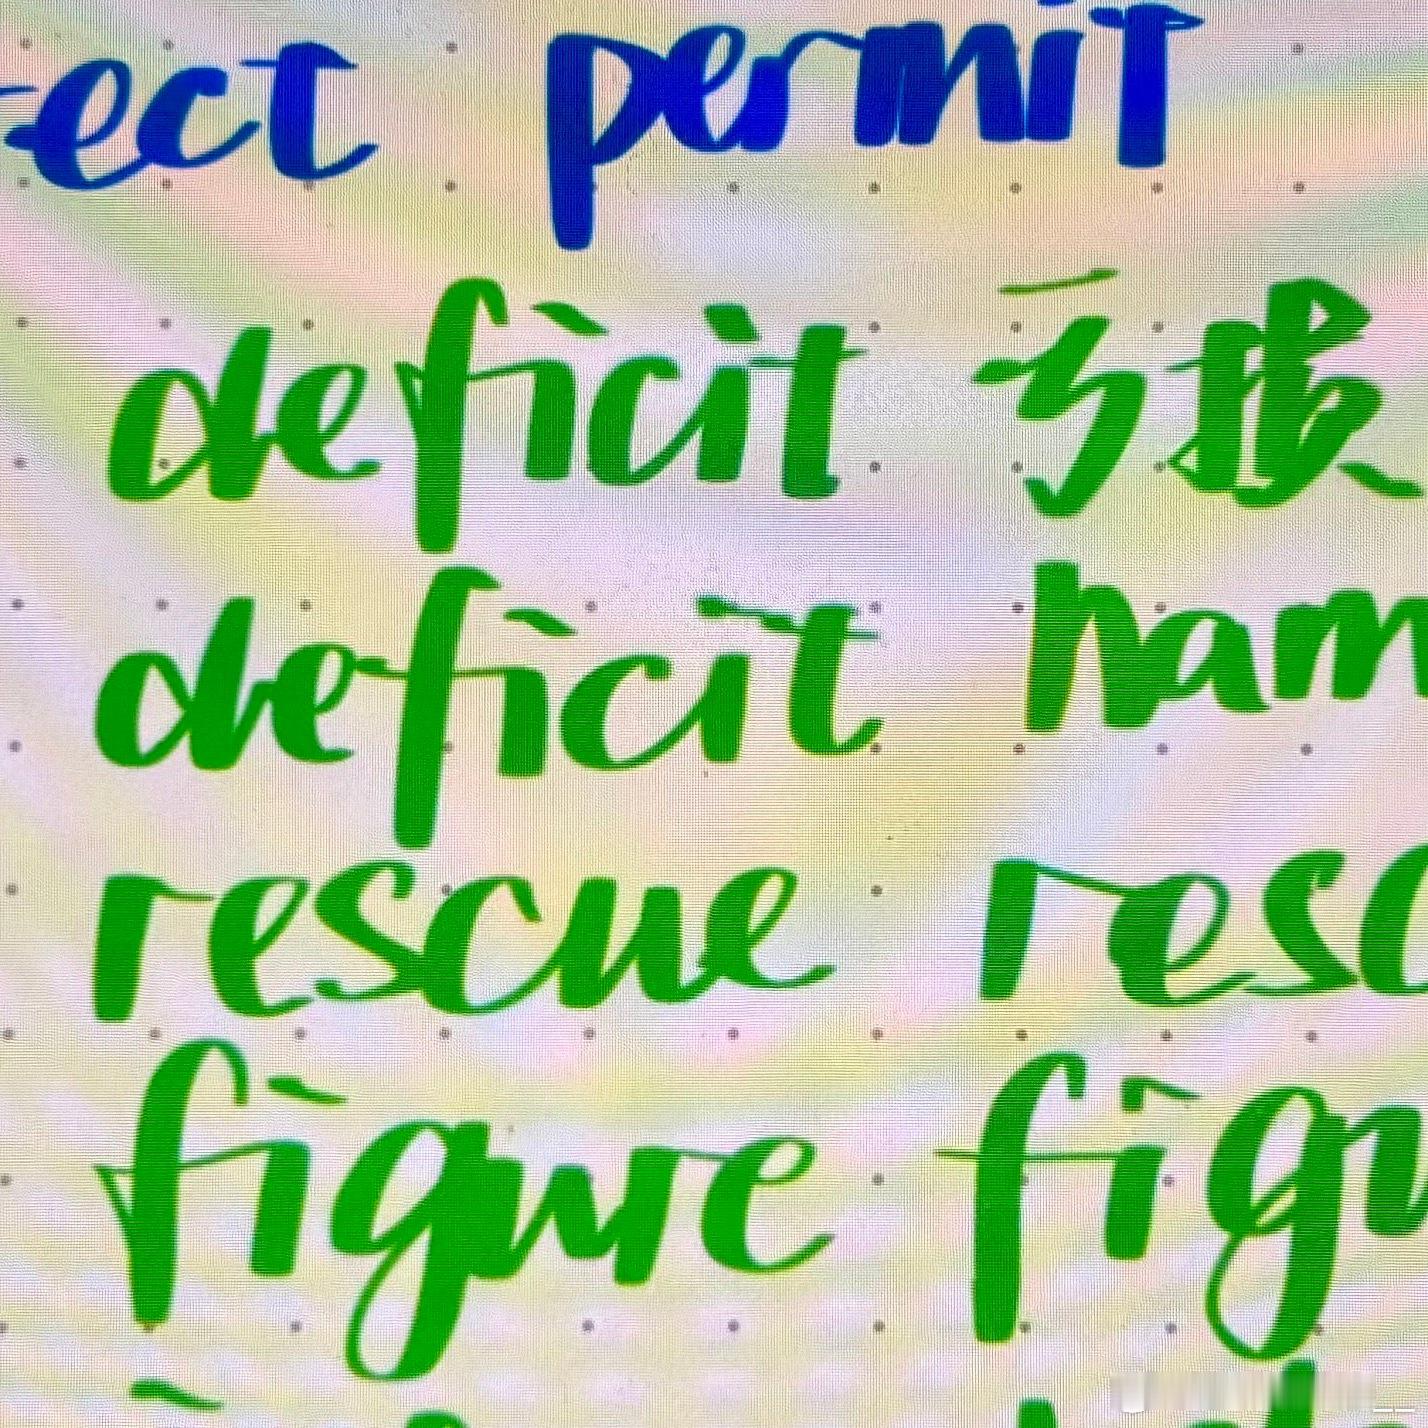 ect permit
deficit 亏损
deficit ham
rescue resc
figure figu